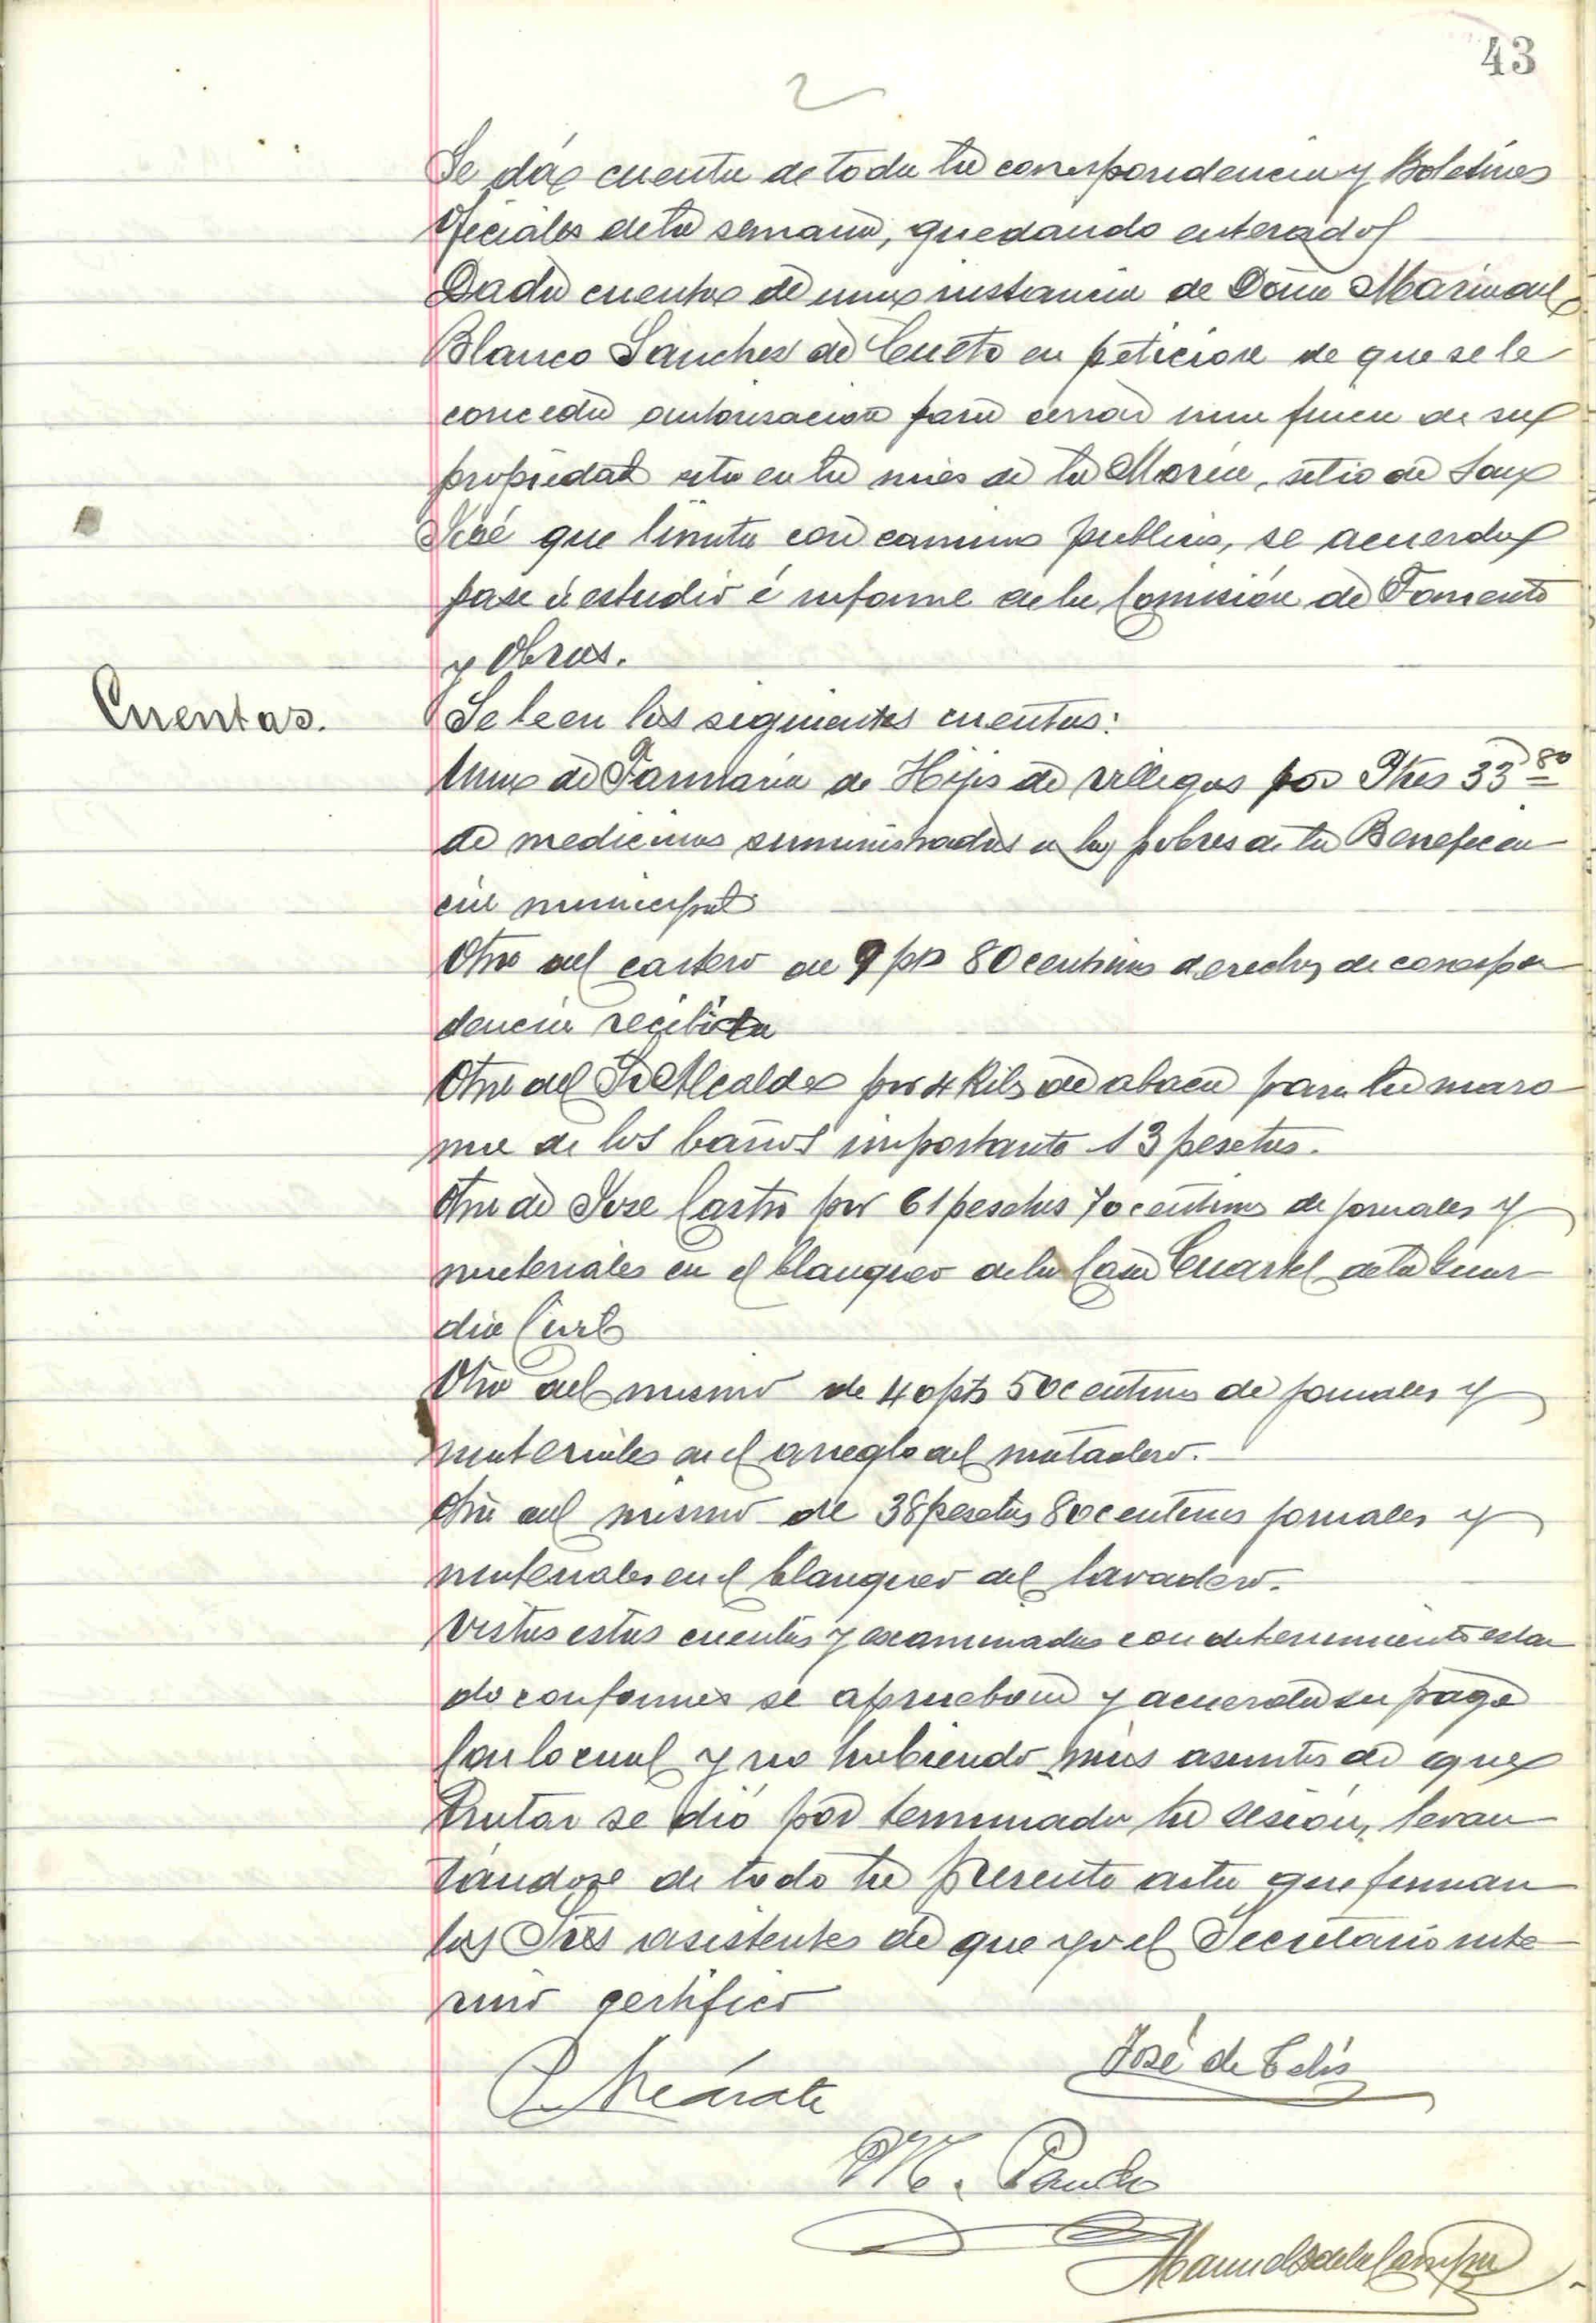 43
2
Se da cuenta de toda la correspondencia y Boletines
oficiales de la semana, quedando enterados
Dada cuenta de una instancia de Doña Maria del
Blanco Sanchez de Cueto en peticion de que se le
conceda autorisacion para cerrar una finca de su
propiedad sita en la mies de la Maréa, sitio de San
José que limita con camino publico, se acuerda
pase á estudio é informe de la Comisión de Fomento
y Obras.
Cuentas.
Se leen las siguientes cuentas:
Una de Farmacia de Hijos de Villegas por Ptas 33 80
de medicinas suministradas a los pobres de la Beneficen
cia municipal
Otra del cartero de 9 pts 80 centimos derechos de correspon
dencia recibida
Otra del Sr Alcalde por 4 Kilos de abaca para la maro
ma de los baños importante 13 pesetas.
Otra de Jose Castro por 61 pesetas 70 centimos de jornales y
materiales en el blanqueo de la Casa Cuartel de la Guar
dia Civil
Otra del mismo de 40 pts 50 centimos de jornales y
materiales en el arreglo del matadero.
Otra del mismo de 38 pesetas 80 centimos jornales y
materiales en el blanqueo del lavadero.
Vistas estas cuentas y examinadas con detenimiento estan
do conformes se aprueban y acuerda su pago
Con lo cual y no habiendo más asuntos de que
tratar se dió por terminada la sesión, levan
tándose de todo la presente acta que firman
los Sres asistentes de que yo el Secretario inte
rino certifico
José de Celis
M. Pando
Manuel de la Campa